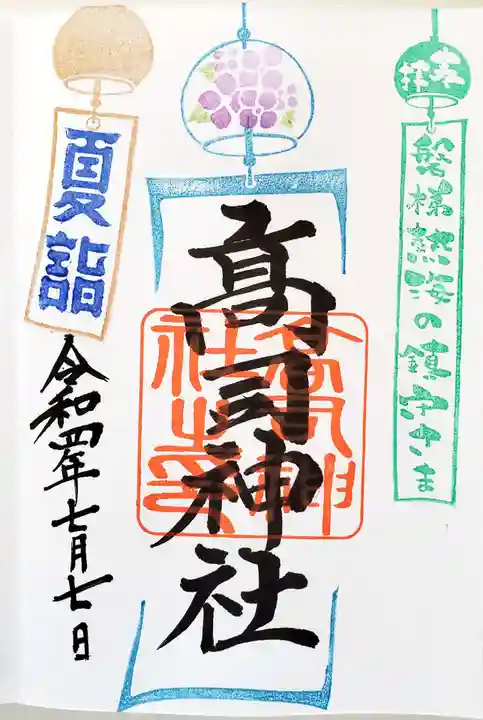 奉拝
磐梯熱海の鎮守さま
髙司神社
高司神
社之印
夏詣
令和四年七月七日